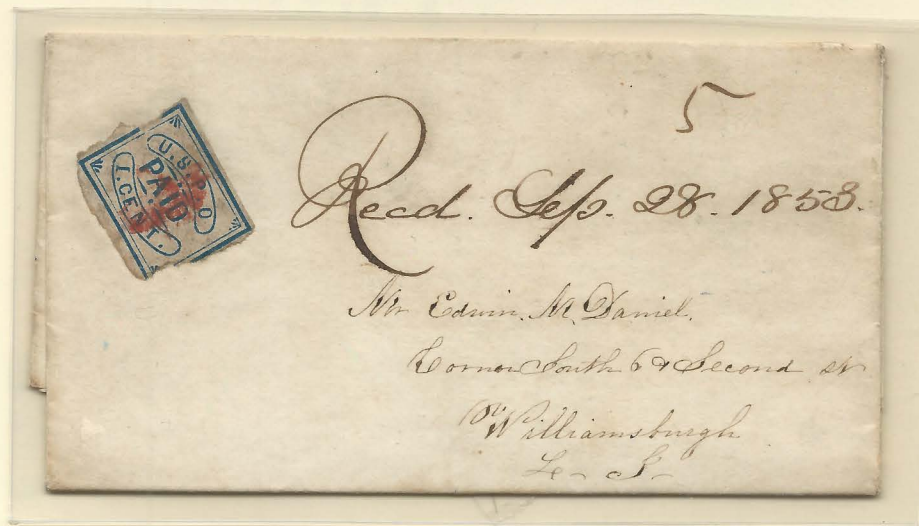 5
U.S.P.O
PAID
1.CENT.
Recd. Sep. 28. 1853.
Mr Edwin. M. Daniel.
Corner South 6 & Second st
Williamsburgh
L. I.